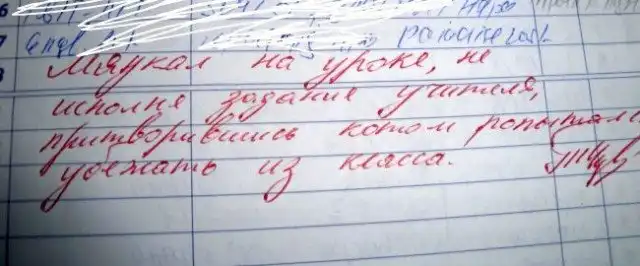 Мяукал на уроке, не
исполне задание учителя,
притворившись котом попытал
убежать из класса.